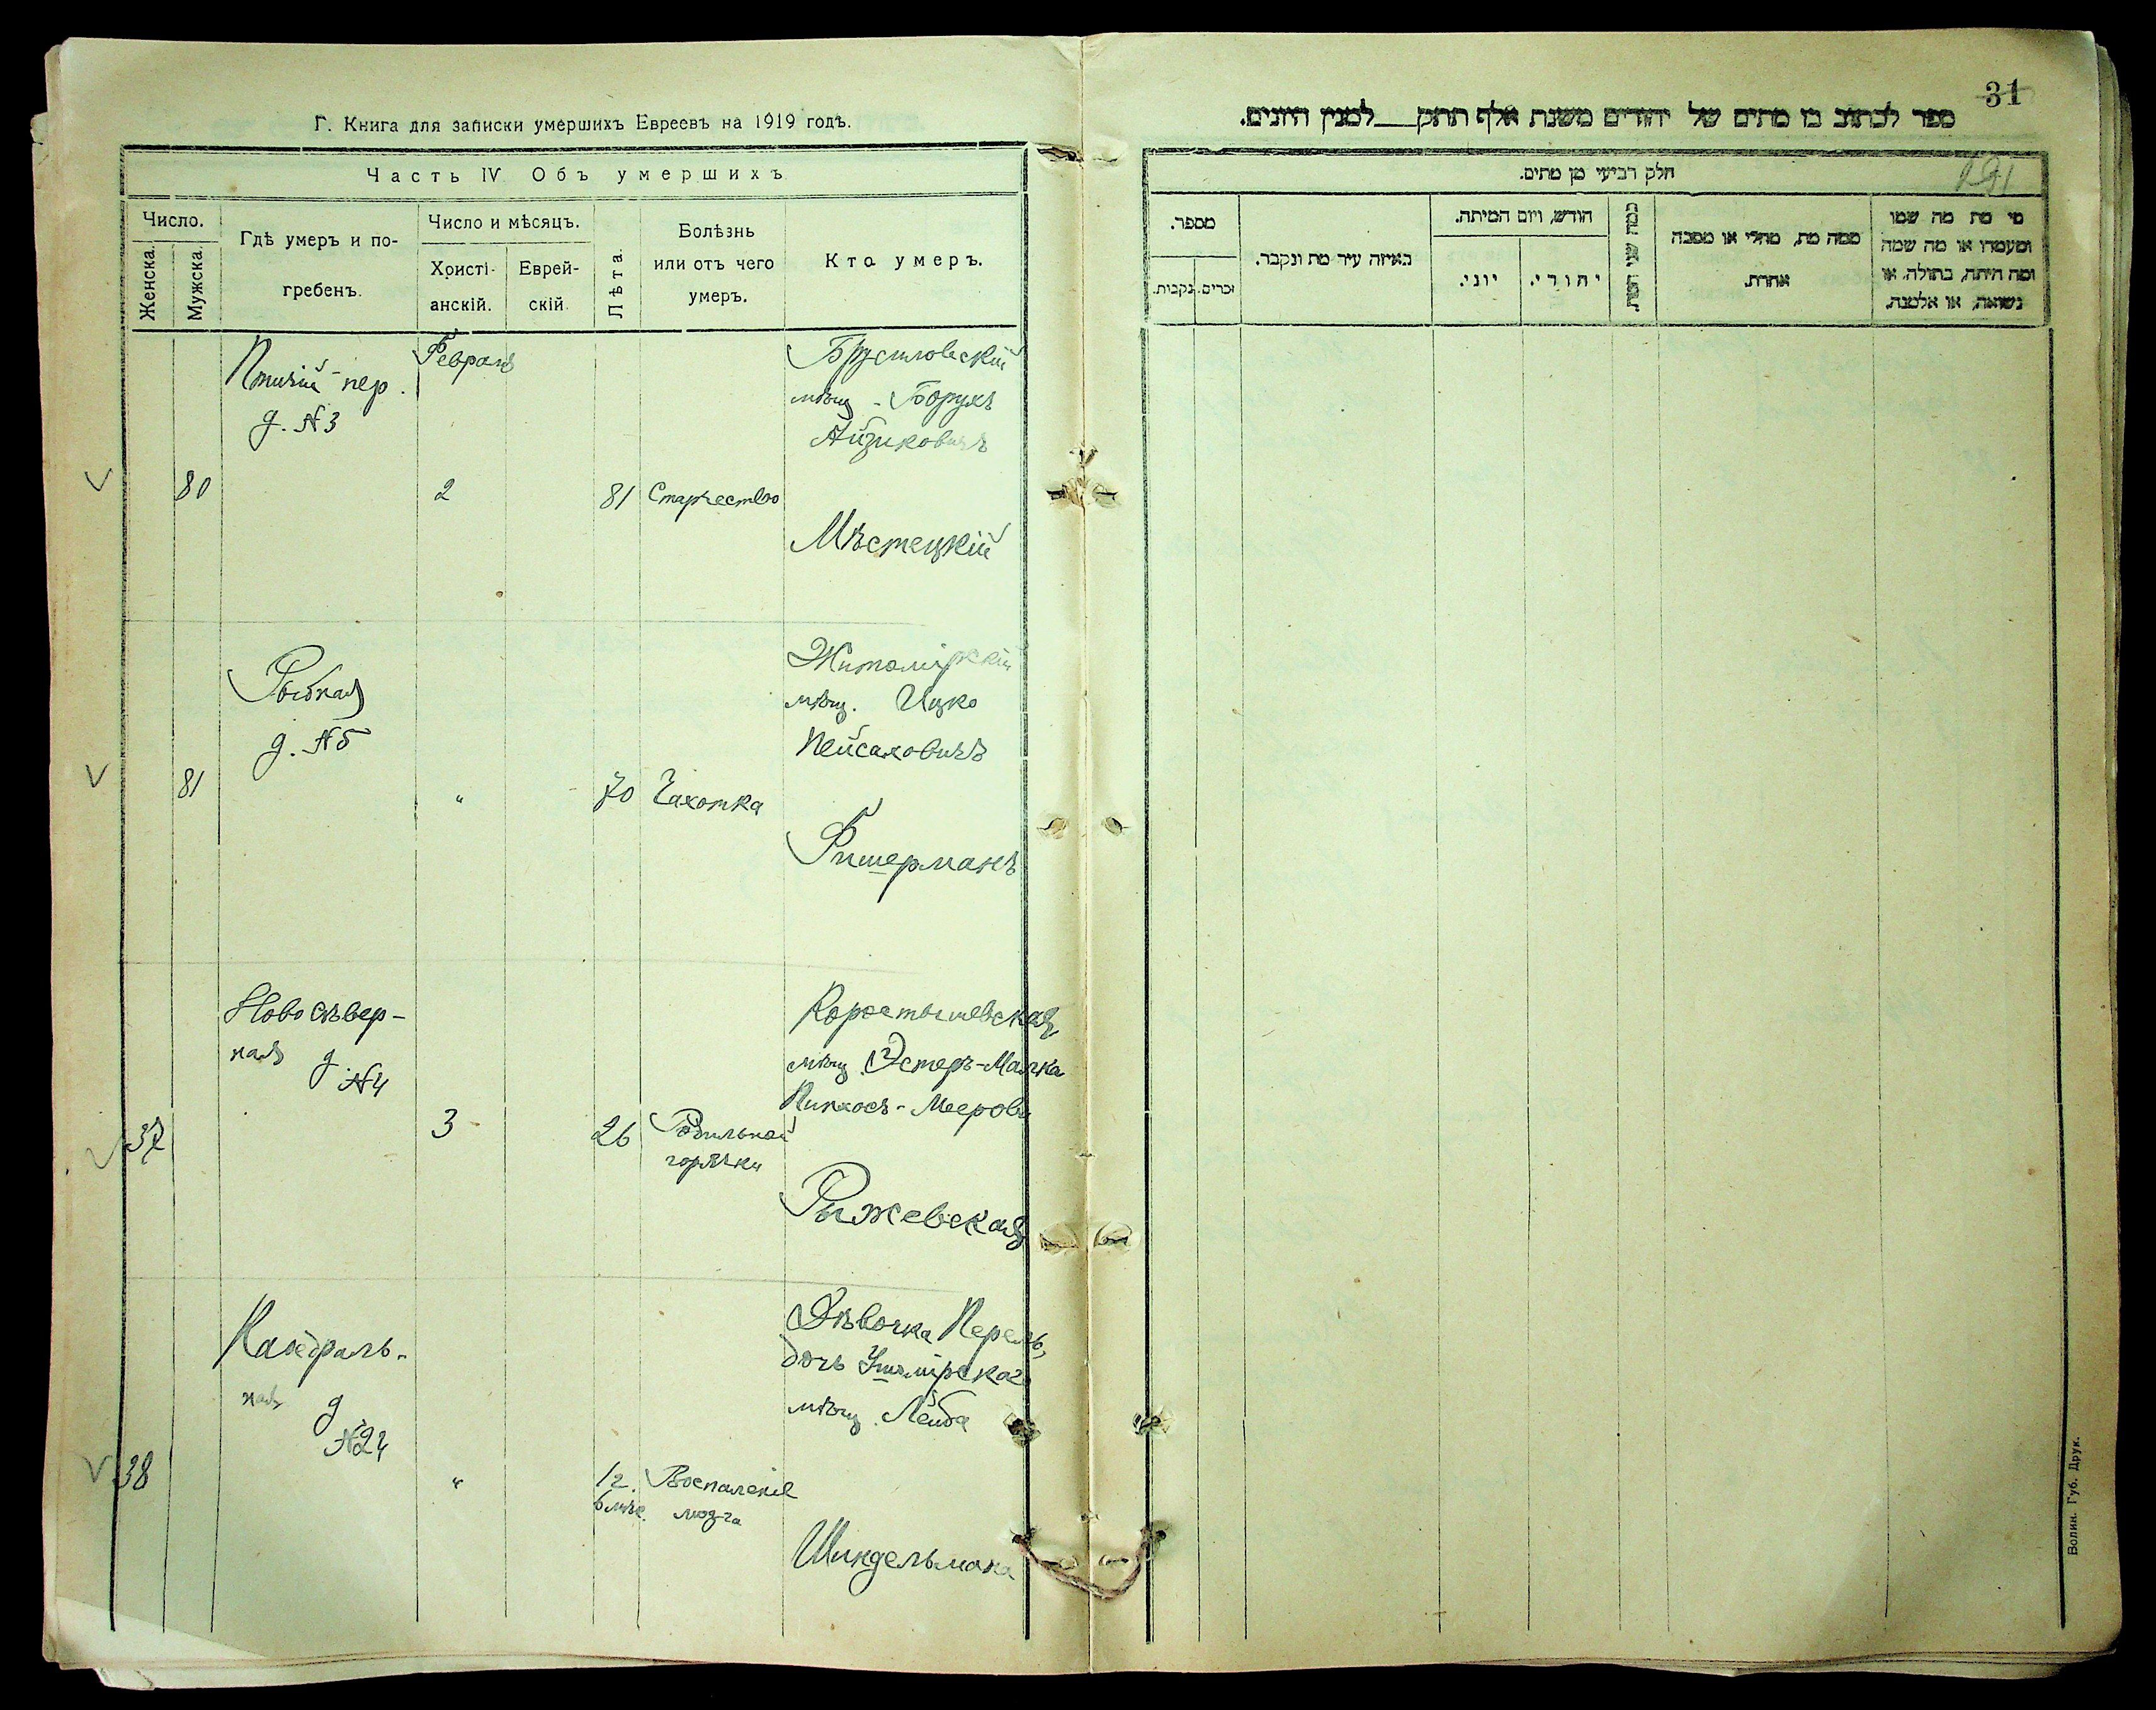 Г. Книга для записки умершихъ Евреевъ на 1919 годъ.
Часть IV Объ умершихъ
Число.
Женска.
Мужска.
Гдѣ умеръ и по-
гребенъ.
Число и мѣсяцъ.
Христі-
анскій.
Еврей-
скій.
Лѣта.
Болѣзнь
или отъ чего
умеръ.
Кто умеръ.
80
Птичій пер.
д. №3
Февраль
2
81
Старчество
Брусиловскій
мѣщ. Борухъ
Айзиковичъ
Мѣстецкій
81
Рыбная
д. №5
"
70
Чахотка
Житомірскій
мѣщ. Ицко
Пейсаховичъ
Фишерманъ
37
Ново Сѣвер-
ная д. №4
3
26
Родильной
горячки
Коростышевская
мѣщ. Эстеръ-Малка
Пинхосъ-Меерова
Рыжевская
38
Каѳедраль-
ная д.
№24
"
1 г.
6 мѣс.
Воспаленіе
мозга
Дѣвочка Перель,
дочь Ушомірскаго
мѣщ. Лейба
Шиндельмана
31
ספר לכתוב בו מתים של יהודים משנת אלף תתק__למנין היונים.
חלק רביעי מן מתים.
מספר.
זכרים.
נקבות.
באיזה עיר מת ונקבר.
חודש, ויום המיתה.
יוני.
יהודי.
כמה שני חיות.
ממה מת, מחלי או מסבה
אחרת.
מי מת מה שמו
ומעמדו או מה שמה
ומה היתה, בתולה, או
נשואה, או אלמנה.
Волин. Губ. Друк.